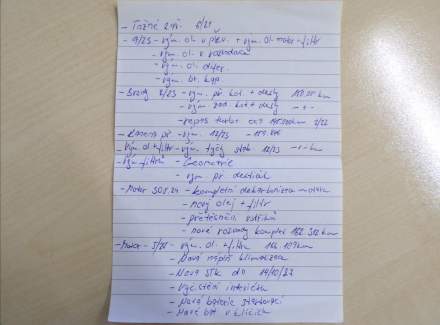 - Tažné zař. 6/21
- 9/23 - vým. ol. v přev. + vým. ol. motor + filtr
- vým. ol. v rozvodovce
- vým. ol. difer.
- vým. br. kap.
- Brzdy 2/23 - vým. př kot. + desky
- vým. zad. kot + desky - " -
- repas turba 2/22
- vým. 12/23
- Vým. ol + filtr - vým. tyčky stab. 12/23 - " - km
- Vým. filtrů - Geometrie
- vým. př. destiček
- Motor 30.8.24 - kompletní dekarbonizace motoru
- nový olej + filtr
- přetěsnění vstřiků
- nové rozvody komplet 162.312 km
- Motor - vým. ol. + filtr 166.107 km
- Nová náplň klimatizace
- Nová STK do 14/10/27
- Vyčištění interiéru
- Nová baterie startovací
- Nové bat v klíčích